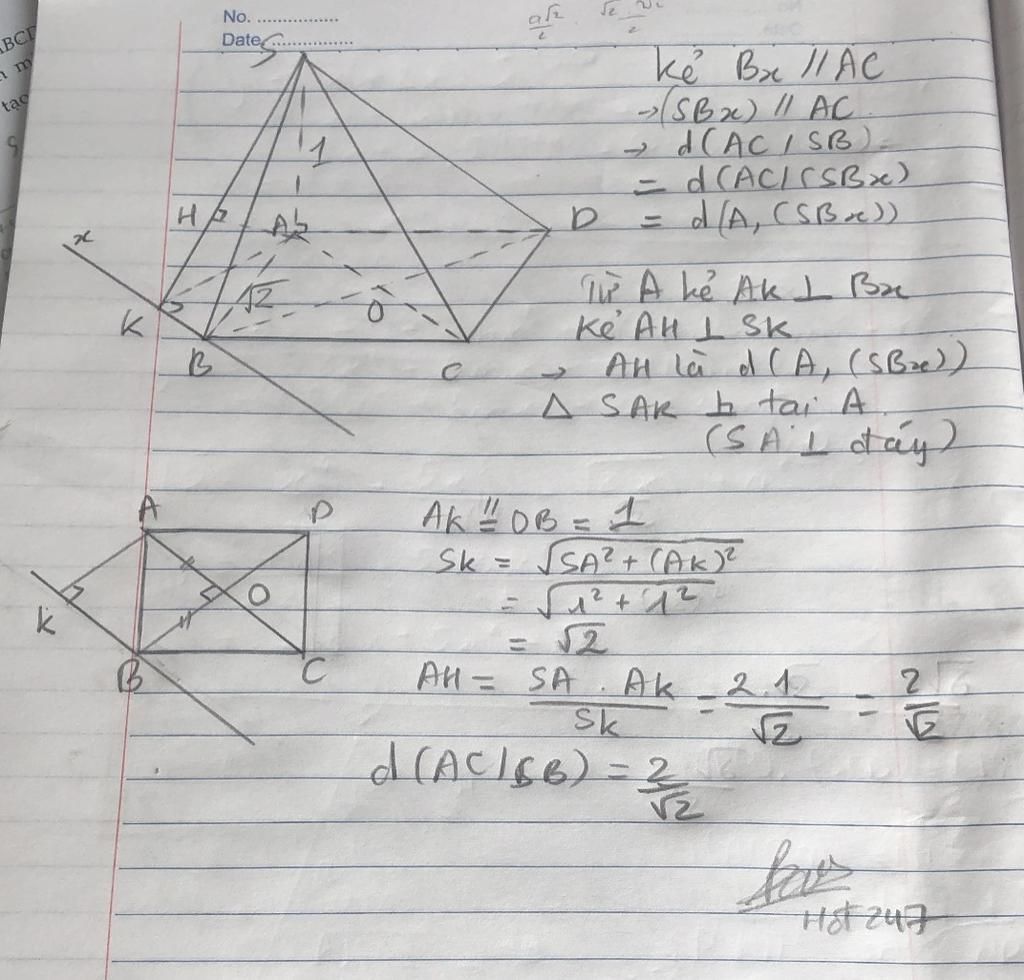 No. ................
Date ................
a√2/2 . √2.√2/2
ABCD
n m
tạo
S
1
H
A
D
x
√2
O
K
B
C
kẻ Bx // AC
→ (SBx) // AC
→ d(AC, SB)
= d(AC, (SBx))
= d(A, (SBx))
Từ A kẻ Ak ⊥ Bx
kẻ AH ⊥ Sk
→ AH là d(A, (SBx))
Δ SAK ⊥ tại A
(SA ⊥ đáy)
A
D
O
k
B
C
Ak // = OB = 1
Sk = √SA² + (Ak)²
= √1² + 1²
= √2
AH = SA . Ak / Sk = 2.1 / √2 = 2/√2
d(AC, SB) = 2/√2
Hst 247